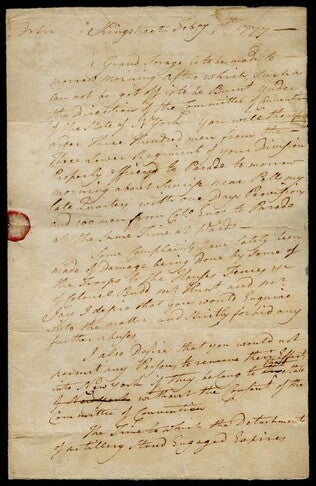 Sir Kingstreet Feby 7th 1777
A Grand Forage is to be made to
morrow morning after which, such as
can not be got off is to be Burnt under
the direction of the Committee of Convention
of the State of N York You will therefore
order three Hundred men from the
three Lower Regiments of your Division
Properly officered to Parade to morrow
morning about Sunrise near
late Quarters with one Days Provision
and 100 men from Colo Enos to Parade
at the Same Time at
Some Complaints have lately been
made of damage being done by Some of
the Troops
of Colonel and
I desire that you would Enquire
into the matter, and Strictly forbid any
further abuses
I also Desire that you would not
permit any Persons to remove their Effects
into New York if they belong to this State
without the Consent of the
Committee of Convention
The Time to which the Detachment
of artillery Stand Engaged Expires